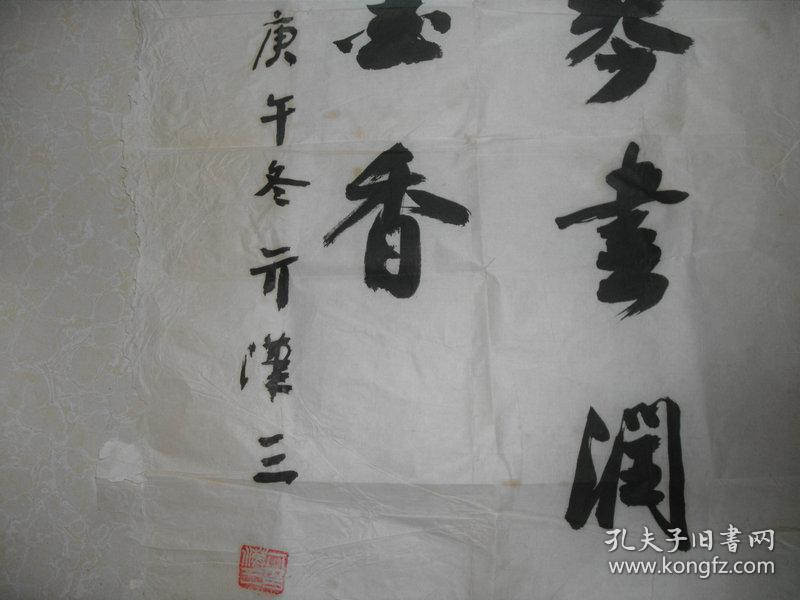 琴書潤
香
庚午冬 亓漢三
孔夫子旧書网
www.kongfz.com